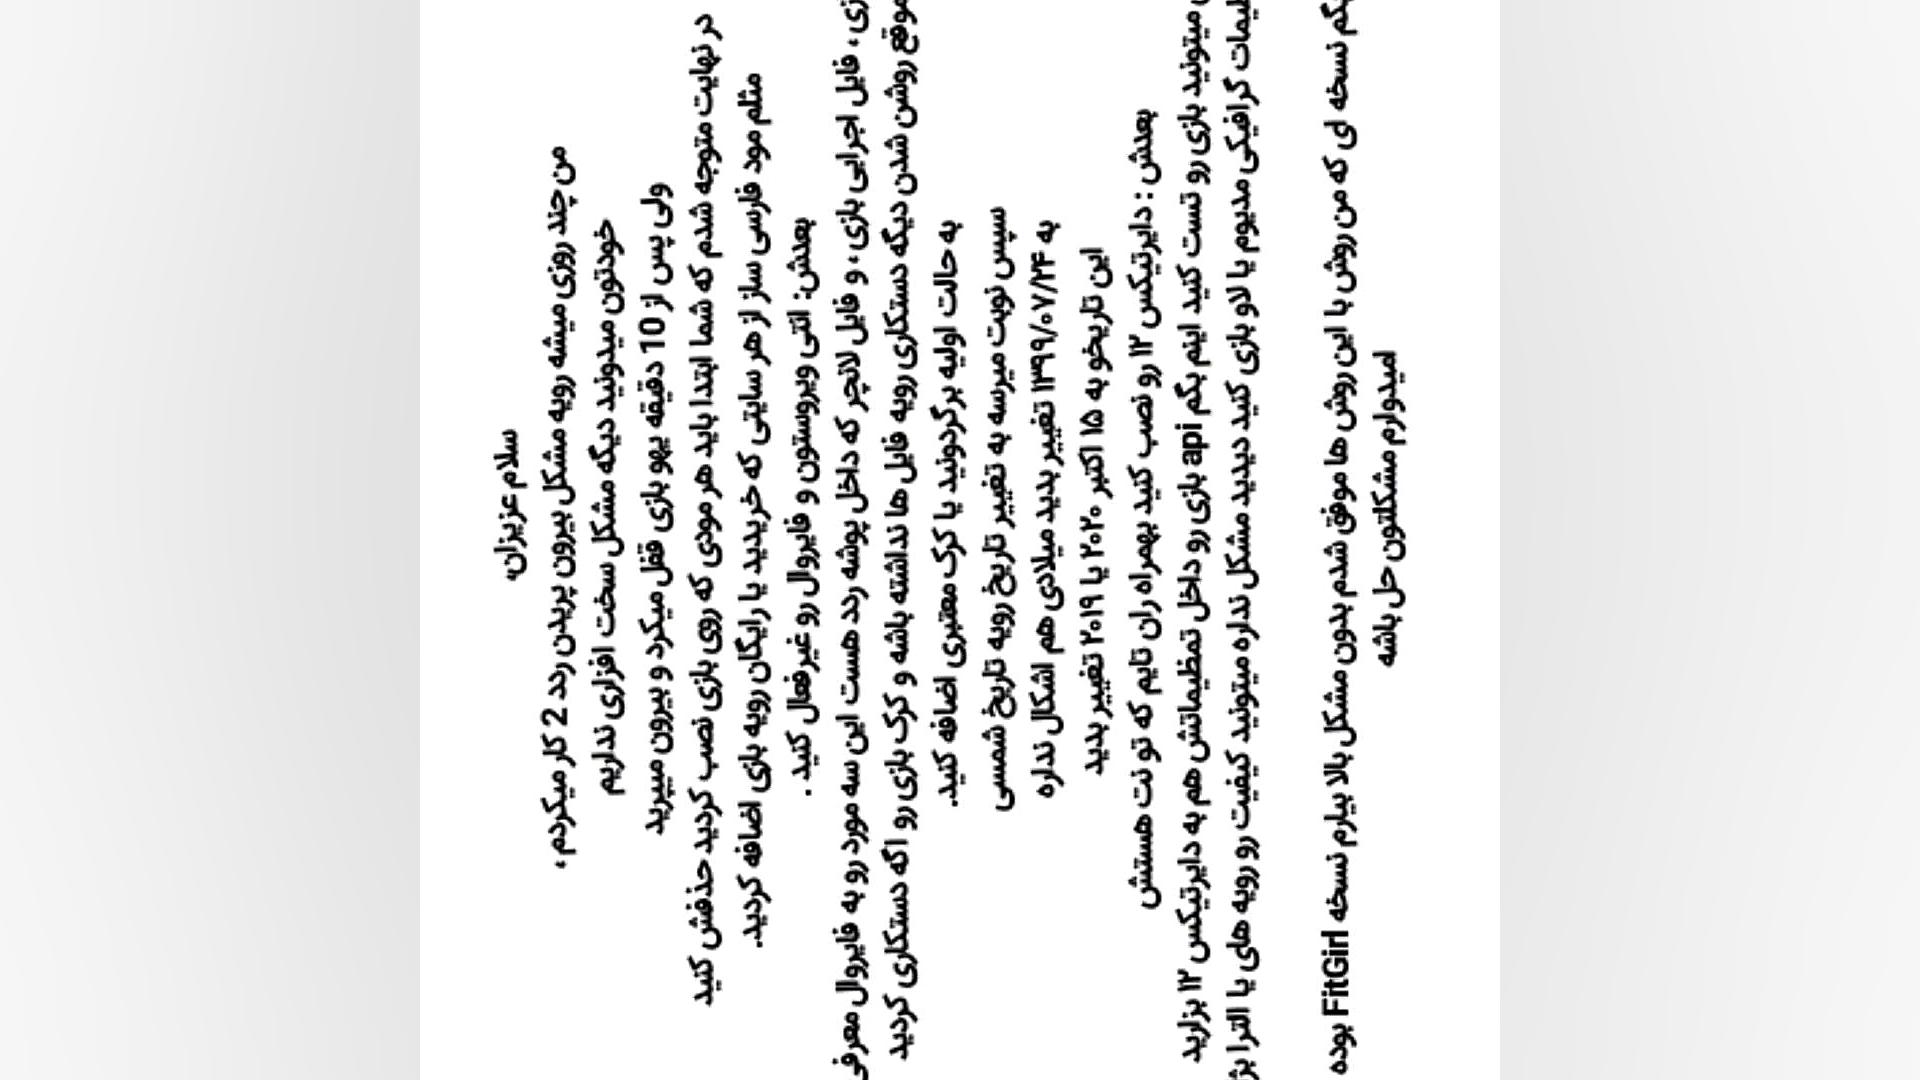 سلام عزیزان،
من چند روزی میشه رویه مشکل بیرون پریدن ردد 2 کار میکردم،
خودتون میدونید دیگه مشکل سخت افزاری نداریم
ولی پس از 10 دقیقه یهو بازی قفل میکرد و بیرون میپرید
در نهایت متوجه شدم که شما ابتدا باید هر مودی که روی بازی نصب کردید حذفش کنید
مثلم مود فارسی ساز از هر سایتی که خریدید یا رایگان رویه بازی اضافه کردید.
بعدش: انتی ویروستون و فایروال رو غیرفعال کنید .
زی، فایل اجرایی بازی، و فایل لانچر که داخل پوشه ردد هست این سه مورد رو به فایروال معرفی
موقع روشن شدن دیگه دستکاری رویه فایل ها نداشته باشه و کرک بازی رو اگه دستکاری کردید
به حالت اولیه برگردونید یا کرک معتبری اضافه کنید.
سپس نوبت میرسه به تغییر تاریخ رویه تاریخ شمسی
به ۱۳۹۹/۰۷/۲۴ تغییر بدید میلادی هم اشکال نداره
این تاریخو به ۱۵ اکتبر ۲۰۲۰ یا ۲۰۱۹ تغییر بدید
بعدش : دایرتیکس ۱۲ رو نصب کنید بهمراه ران تایم که تو نت هستش
میتونید بازی رو تست کنید اینم بگم api بازی رو داخل تمظیماتش هم به دایرتیکس ۱۲ بزارید
لیمات گرافیکی مدیوم یا لاو بازی کنید دیدید مشکل نداره میتونید کیفیت رو رویه های یا الترا بژ
بگم نسخه ای که من روش با این روش ها موفق شدم بدون مشکل بالا بیارم نسخه FitGirl بوده
امیدوارم مشکلتون حل باشه